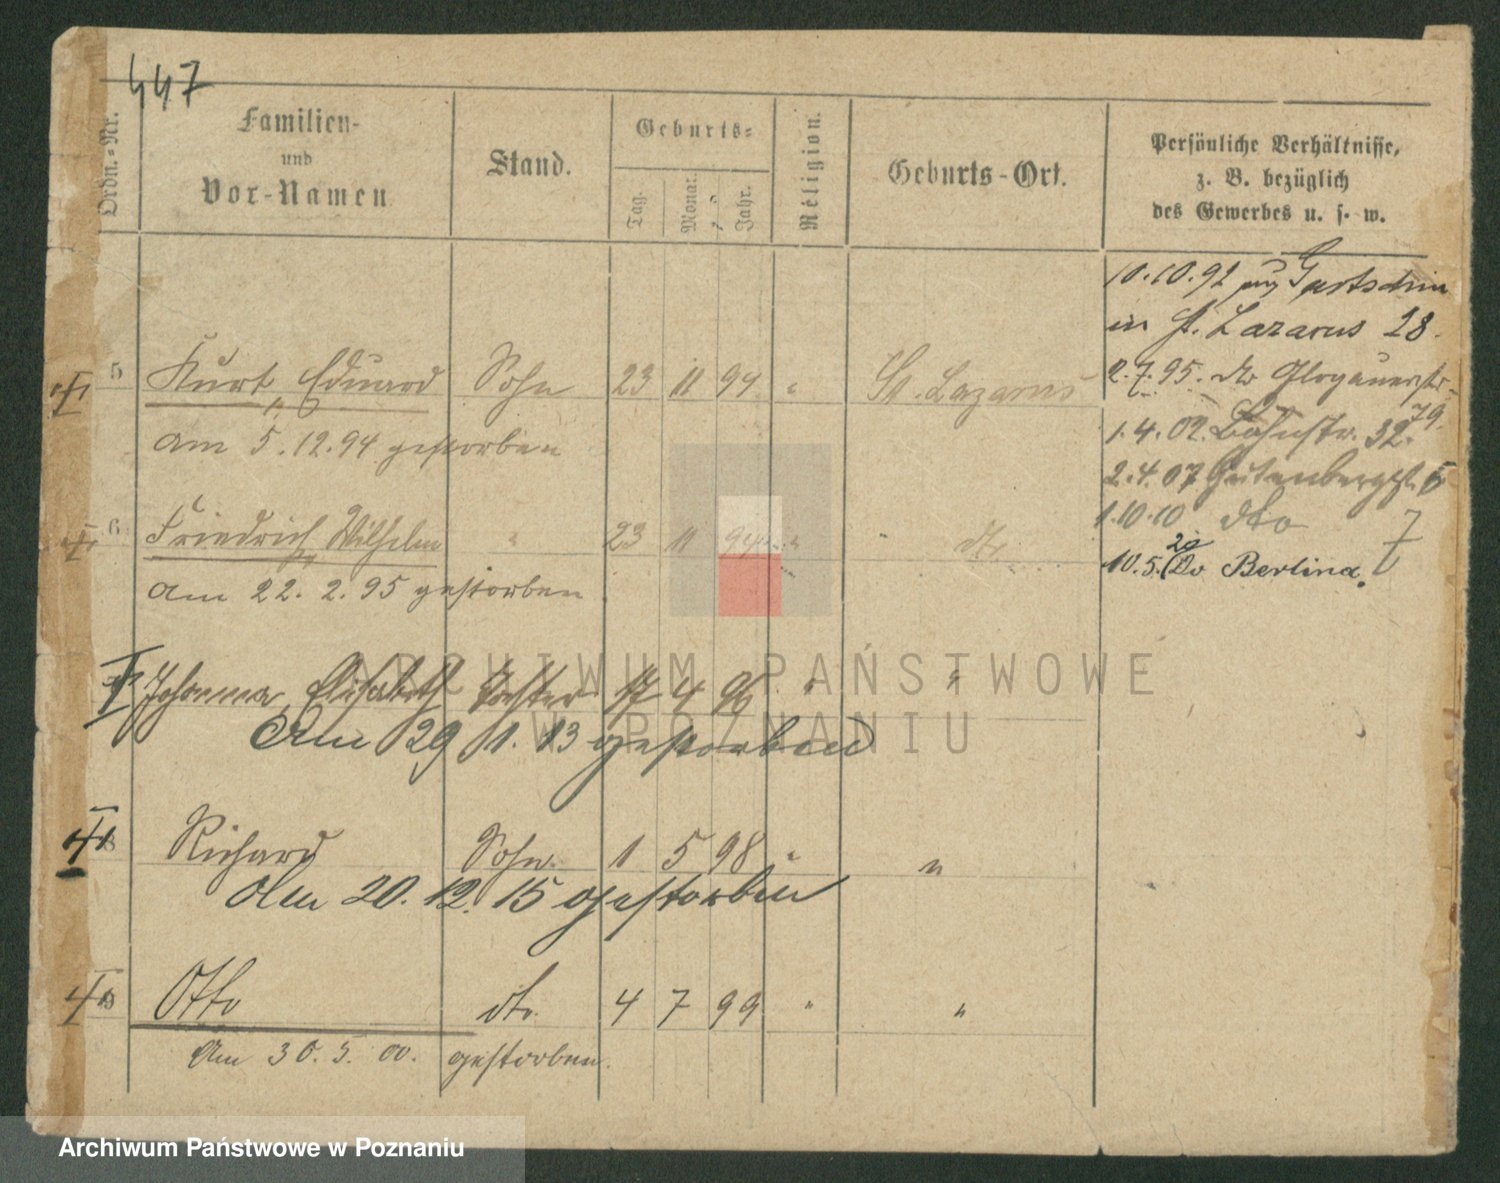 447
Ordn.-Nr.
Familien-
und
Vor-Namen
Stand.
Geburts-
Tag.
Monat.
Jahr.
Religion.
Geburts-Ort.
Persönliche Verhältnisse,
z. B. bezüglich
des Gewerbes u. s. w.
10.10.92
in St. Lazarus 28.
5 Kurt Eduard Sohn 23 11 94 " St. Lazarus
am 5.12.94 gestorben
2.7.95. do Glogauerstr.
79.
1.4.02. Bahnstr. 32.
2.4.07 Gutenbergstr. 5
1.10.10 dto 7
10.5.20 Berlina.
6 Friedrich Wilhelm " 23 11 94 " " dto
am 22. 2. 95 gestorben
Johanna Elisabeth Tochter 17 4 96 " "
Am 29 1. 13 gestorben
8 Richard Sohn 1 5 98 " "
Am 20. 12. 15 gestorben
9 Otto dto. 4 7 99 " "
Am 30. 5. 00. gestorben.
ARCHIWUM PAŃSTWOWE
W POZNANIU
Archiwum Państwowe w Poznaniu